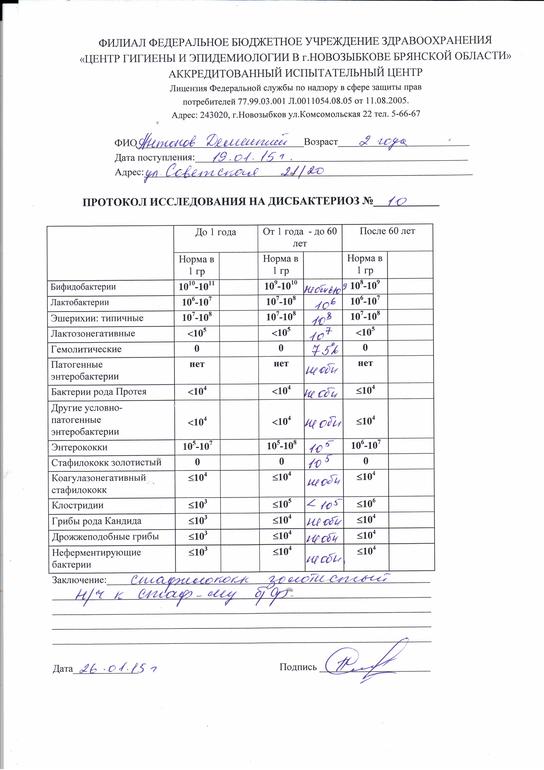 ФИЛИАЛ ФЕДЕРАЛЬНОЕ БЮДЖЕТНОЕ УЧРЕЖДЕНИЕ ЗДРАВООХРАНЕНИЯ
«ЦЕНТР ГИГИЕНЫ И ЭПИДЕМИОЛОГИИ В г.НОВОЗЫБКОВЕ БРЯНСКОЙ ОБЛАСТИ»
АККРЕДИТОВАННЫЙ ИСПЫТАТЕЛЬНЫЙ ЦЕНТР
Лицензия Федеральной службы по надзору в сфере защиты прав
потребителей 77.99.03.001 Л.0011054.08.05 от 11.08.2005.
Адрес: 243020, г.Новозыбков ул.Комсомольская 22 тел. 5-66-67
ФИО Антонов Дементий Возраст 2 года
Дата поступления: 19.01.15г.
Адрес: ул Советская 21/20
ПРОТОКОЛ ИССЛЕДОВАНИЯ НА ДИСБАКТЕРИОЗ № 10
До 1 года От 1 года - до 60 лет После 60 лет
Норма в 1 гр Норма в 1 гр Норма в 1 гр
Бифидобактерии 10¹⁰-10¹¹ 10⁹-10¹⁰ 10⁸-10⁹
Лактобактерии 10⁶-10⁷ 10⁷-10⁸ 10⁶ 10⁶-10⁷
Эшерихии: типичные 10⁷-10⁸ 10⁷-10⁸ 10⁸ 10⁷-10⁸
Лактозонегативные <10⁵ <10⁵ 10⁷ <10⁵
Гемолитические 0 0 75% 0
Патогенные энтеробактерии нет нет не обн нет
Бактерии рода Протея <10⁴ <10⁴ не обн ≤10⁴
Другие условно-патогенные энтеробактерии <10⁴ <10⁴ не обн ≤10⁴
Энтерококки 10⁵-10⁷ 10⁵-10⁸ 10⁵ 10⁶-10⁷
Стафилококк золотистый 0 0 10⁵ 0
Коагулазонегативный стафилококк ≤10⁴ ≤10⁴ не обн ≤10⁴
Клостридии ≤10³ ≤10⁵ <10⁵ ≤10⁶
Грибы рода Кандида ≤10³ ≤10⁴ не обн ≤10⁴
Дрожжеподобные грибы ≤10³ ≤10⁴ не обн ≤10⁴
Неферментирующие бактерии ≤10³ ≤10⁴ не обн ≤10⁴
Заключение: стафилококк золотистый
н/ч к стаф-му б/ф.
Дата 26.01.15г Подпись